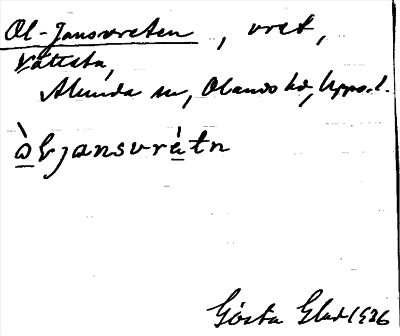 Ol-Jansvreten, vret,
Vällsta,
Alunda sn, Olands hd, Upps. l.
òljansvrétn
Gösta Elad 1936